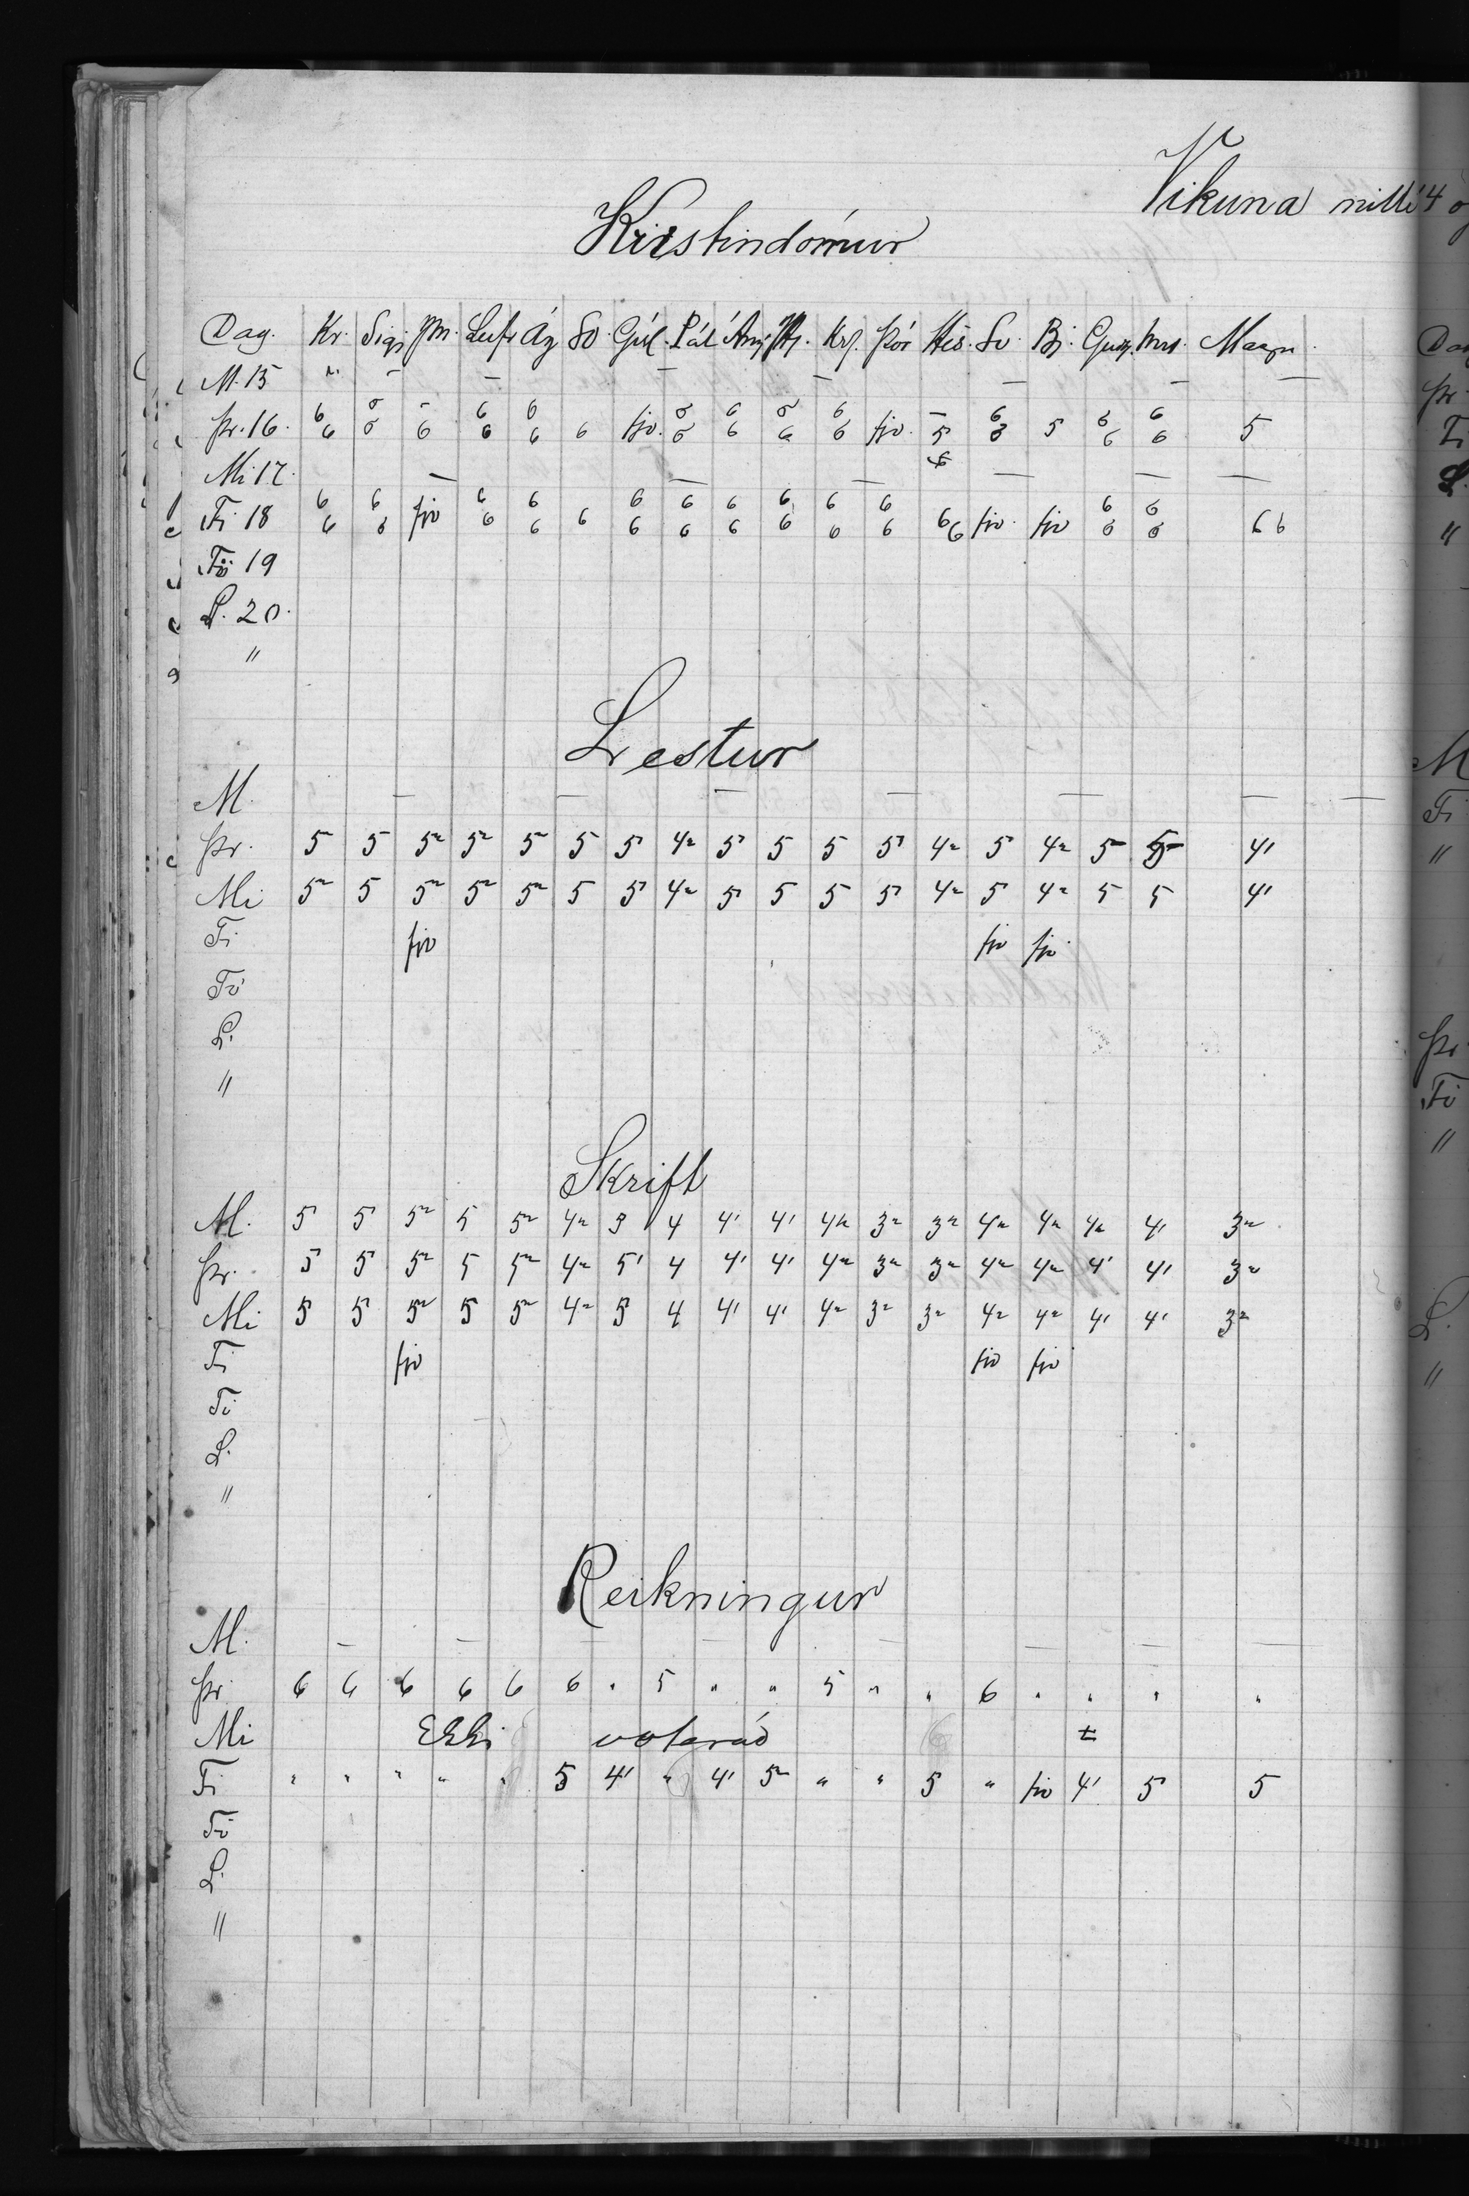 Vikuna milli 4 o
Kristindómur
Dag. Kr. Sigi Jón. Leifr Ág So Gúl. Pál Arnj Krj. Þór Hés. Sv. Bj. Guðj. Magn
M. 15 " - - - - - - - -
Þr. 16. 6 6 6 6 - 6 6 6 6 6 6 fjv. 6 6 6 6 6 6 6 6 fjv. - 5 6 6 5 6 6 6 6 5
Mi 17. - - - - - -
Fi 18 6 6 6 6 fjv 6 6 6 6 6 6 6 6 6 6 6 6 6 6 6 6 6 6 6 fjv. fjv 6 6 6 6 6 6
Fö 19
L. 20.
"
Lestur
M. - - - - - - -
Þr. 5 5 5" 5" 5 5 5' 4" 5' 5 5 5' 4" 5 4" 5 5 4'
Mi 5" 5 5" 5" 5" 5 5 4" 5' 5 5 5' 4" 5 4" 5 5 4'
Fi fjv fjv fjv
Fö
L.
"
Skrift
M. 5' 5' 5" 5 5" 4" 5 4 4' 4' 4" 3" 3" 4" 4" 4" 4' 3"
Þr. 5 5 5" 5 5" 4" 5' 4 4' 4' 4" 3" 3" 4" 4" 4' 4' 3"
Mi 5 5 5" 5 5" 4" 5 4 4' 4' 4" 3" 3" 4" 4" 4' 4' 3"
Fi fjv fjv fjv
Fö
L.
"
Reikningur
M. - - - - - - - -
Þr 6 6 6 6 6 6 " 5 " " 5 " " 6 " " " "
Mi Ekki voterað
Fi " " " " " 5 4' " 4' 5" " " 5 " fjv 4' 5' 5
Fö
L.
"